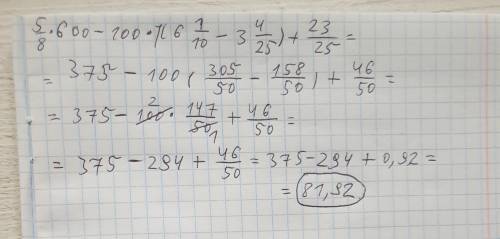 5/8 · 600 - 100 · (6 1/10 - 3 4/25) + 23/25 =
= 375 - 100 (305/50 - 158/50) + 46/50 =
= 375 - 100 2 · 147/50 1 + 46/50 =
= 375 - 294 + 46/50 = 375 - 294 + 0,92 =
= 81,92